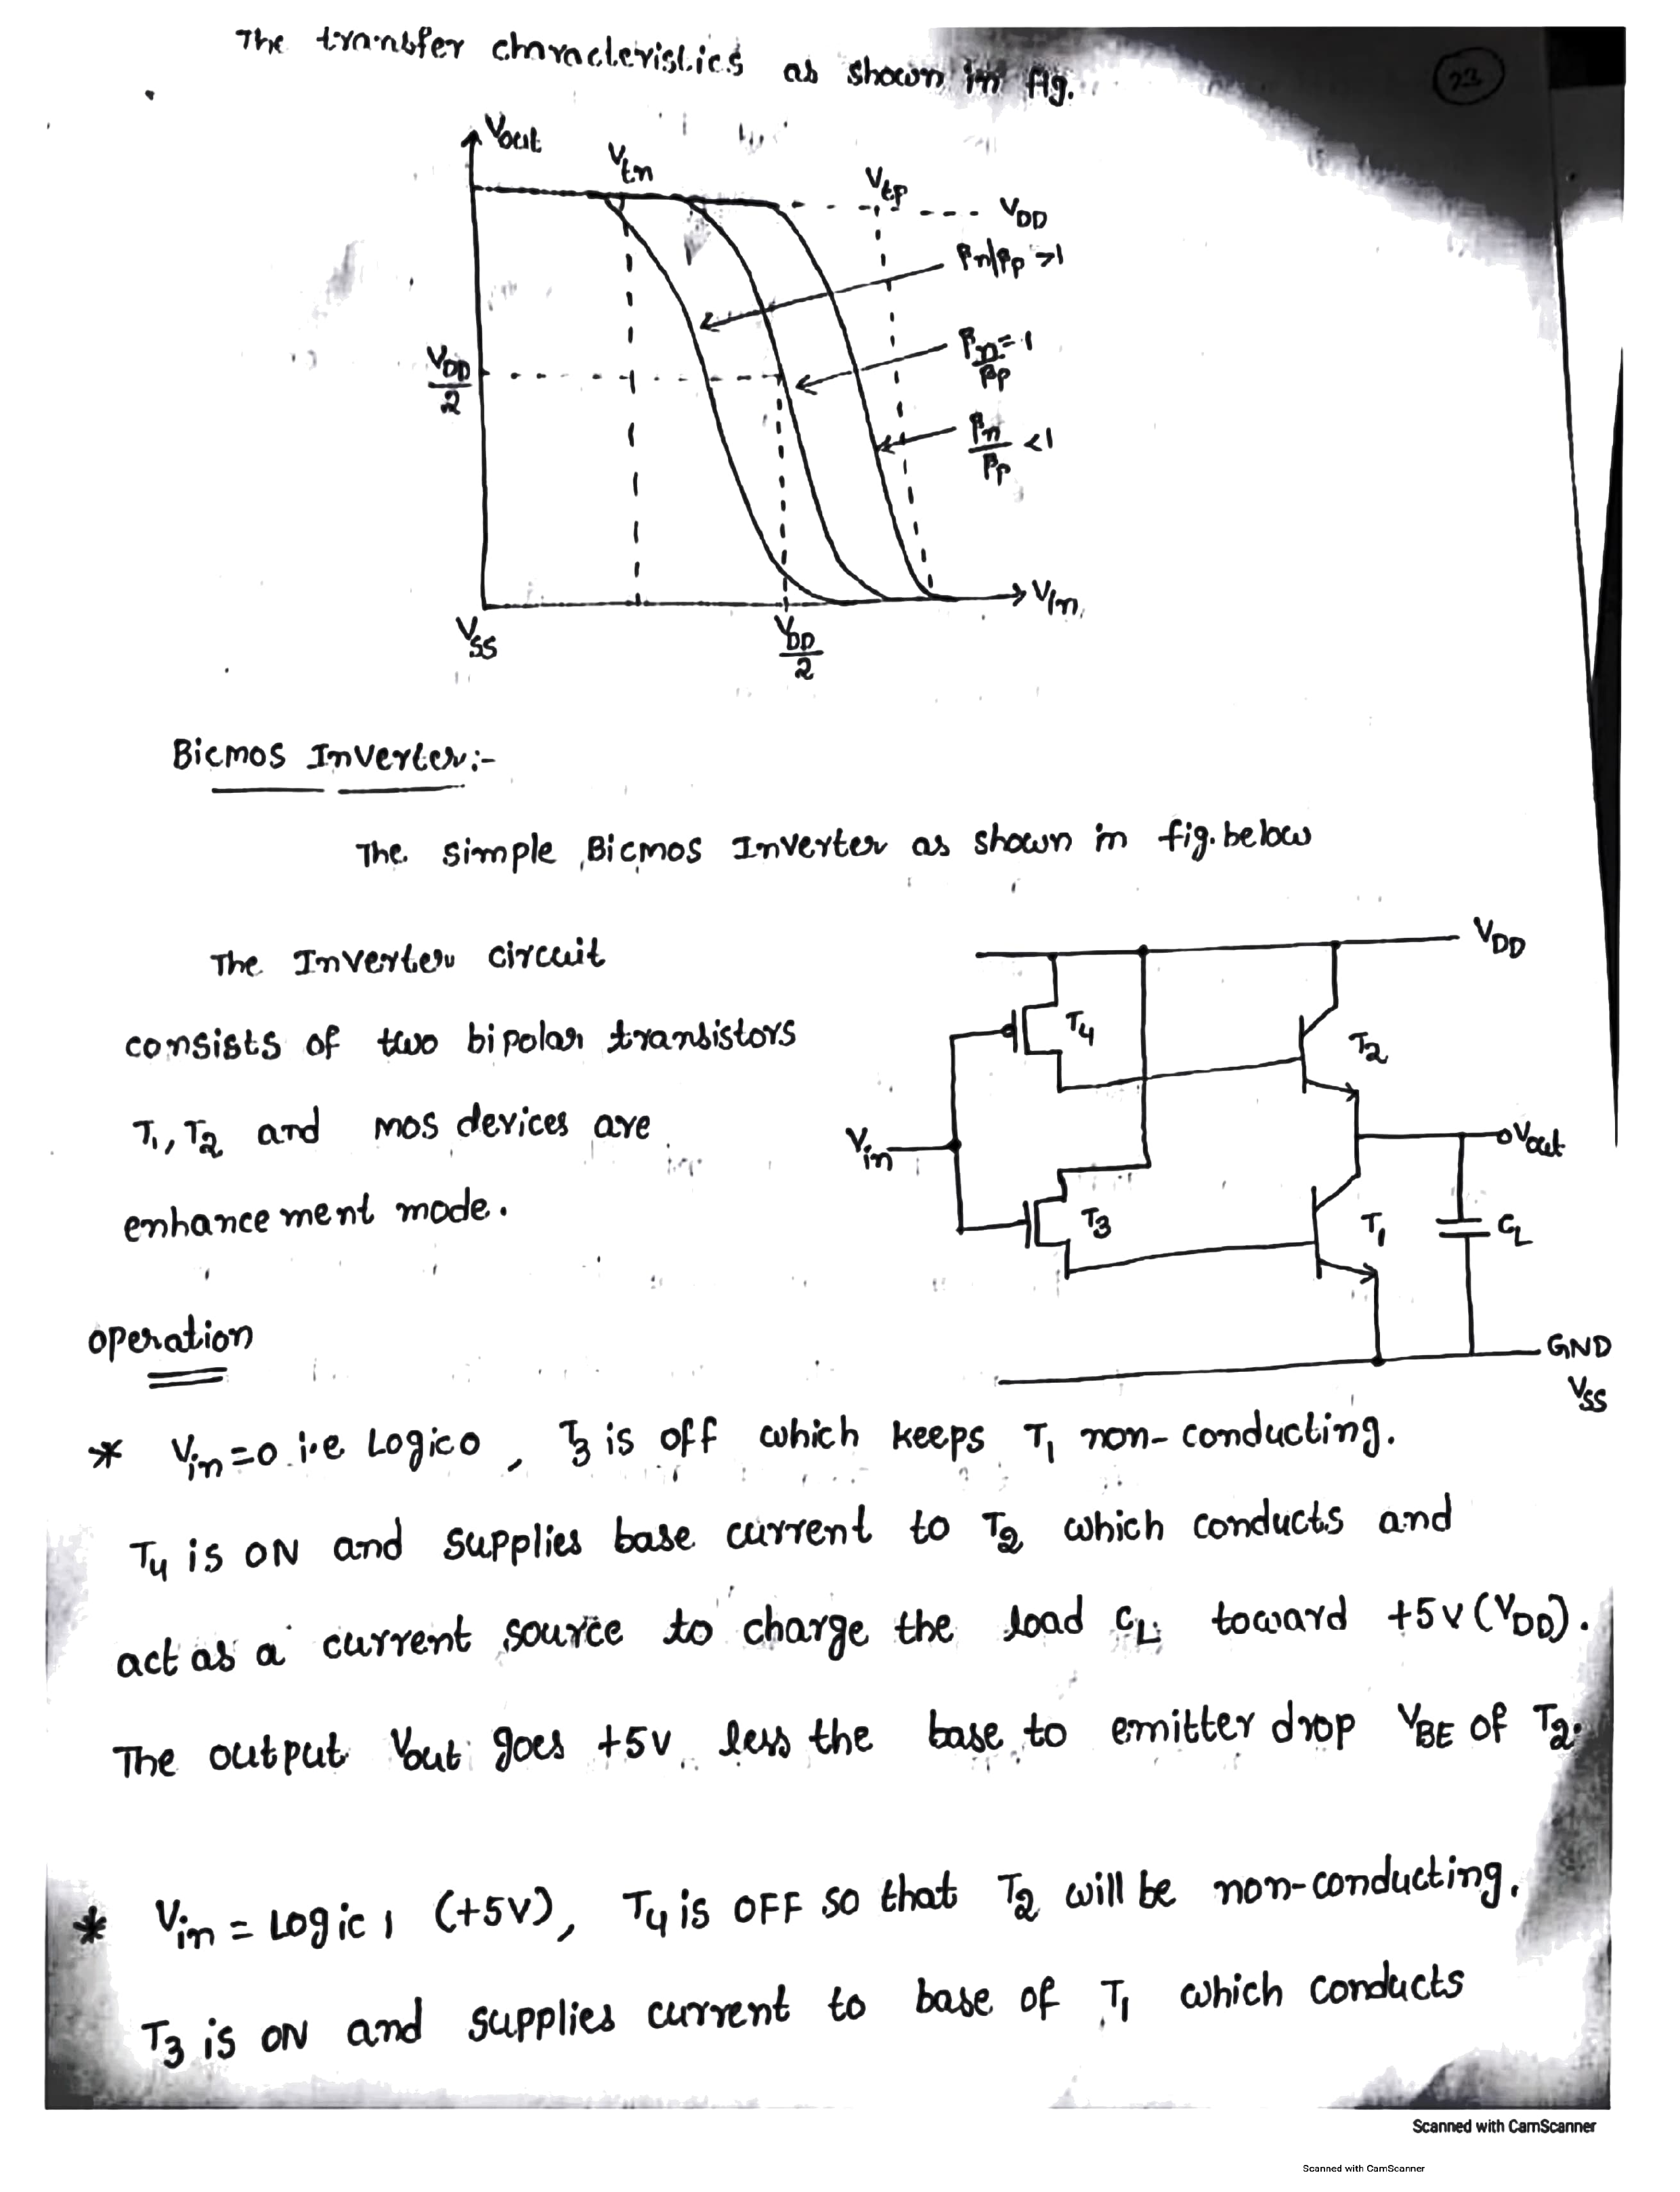 The transfer characteristics as shown in fig.
23
Vout
Vtn
Vtp
VDD
βn/βp >1
VDD/2
βn/βp = 1
βn/βp <1
Vin
VSS
VDD/2
Bicmos Inverter:-
The simple Bicmos Inverter as shown in fig. below
The Inverter circuit
consists of two bipolar transistors
T1, T2 and mos devices are
enhancement mode.
VDD
T4
T2
Vin
Vout
T3
T1
CL
GND
VSS
operation
* Vin=0 i.e Logic 0, T3 is off which keeps T1 non-conducting.
T4 is ON and supplies base current to T2 which conducts and
act as a current source to charge the load CL toward +5V (VDD).
The output Vout goes +5V less the base to emitter drop VBE of T2.
* Vin = Logic 1 (+5V), T4 is OFF so that T2 will be non-conducting.
T3 is ON and supplies current to base of T1 which conducts
Scanned with CamScanner
Scanned with CamScanner